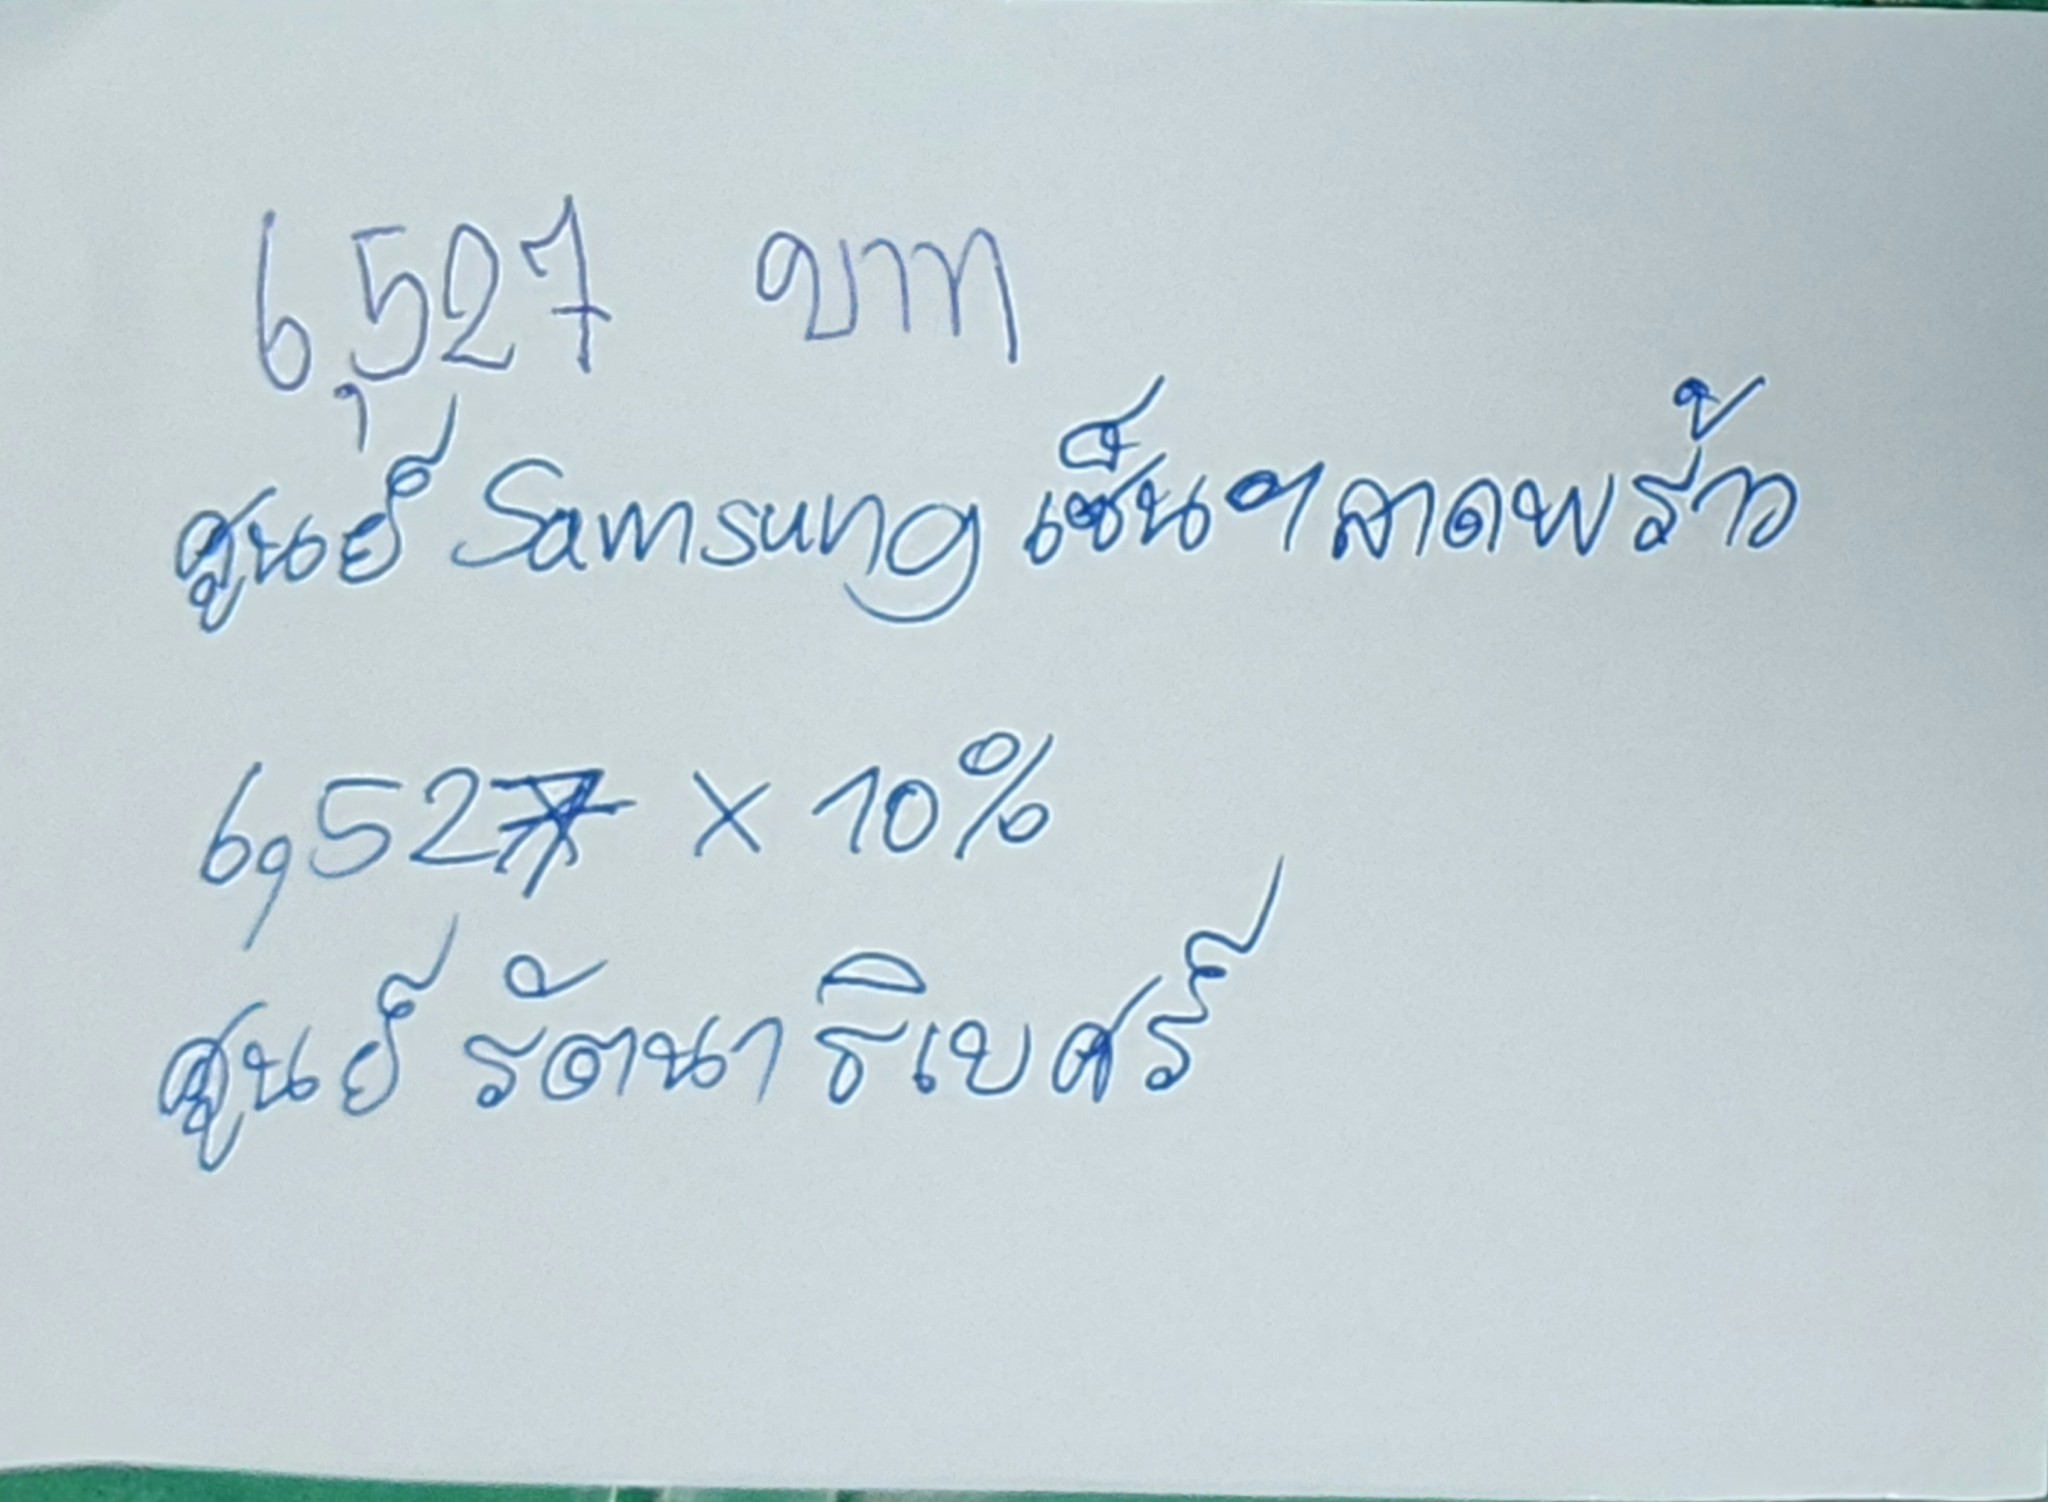 6,527 บาท
ศูนย์ Samsung เซ็นฯ ลาดพร้าว
6,527 × 10%
ศูนย์ รัตนาธิเบศร์